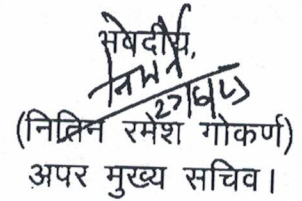 भवदीय,
27/6/25
(नितिन रमेश गोकर्ण)
अपर मुख्य सचिव।